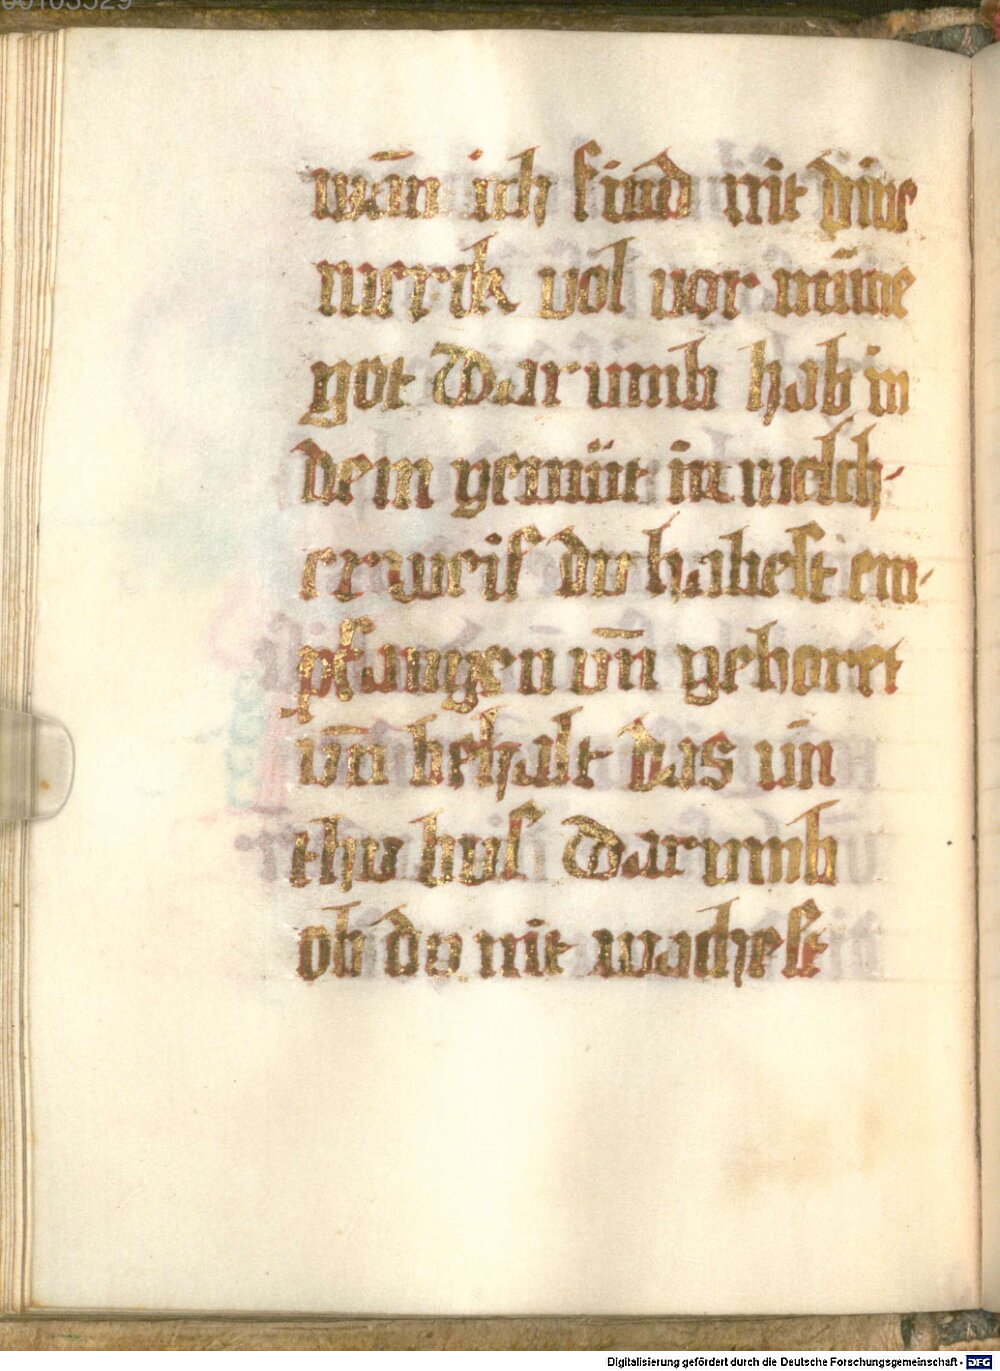 00103529
wān ich find nit dine
werck vol vor mīne
got Dar umb hab in
dem gemüt in welch-
erweis du habest em-
pfangen vn̄ gehoret
vn̄ behalt das vn̄
thu bus Darumb
ob du nit wachest
Digitalisierung gefördert durch die Deutsche Forschungsgemeinschaft - DFG